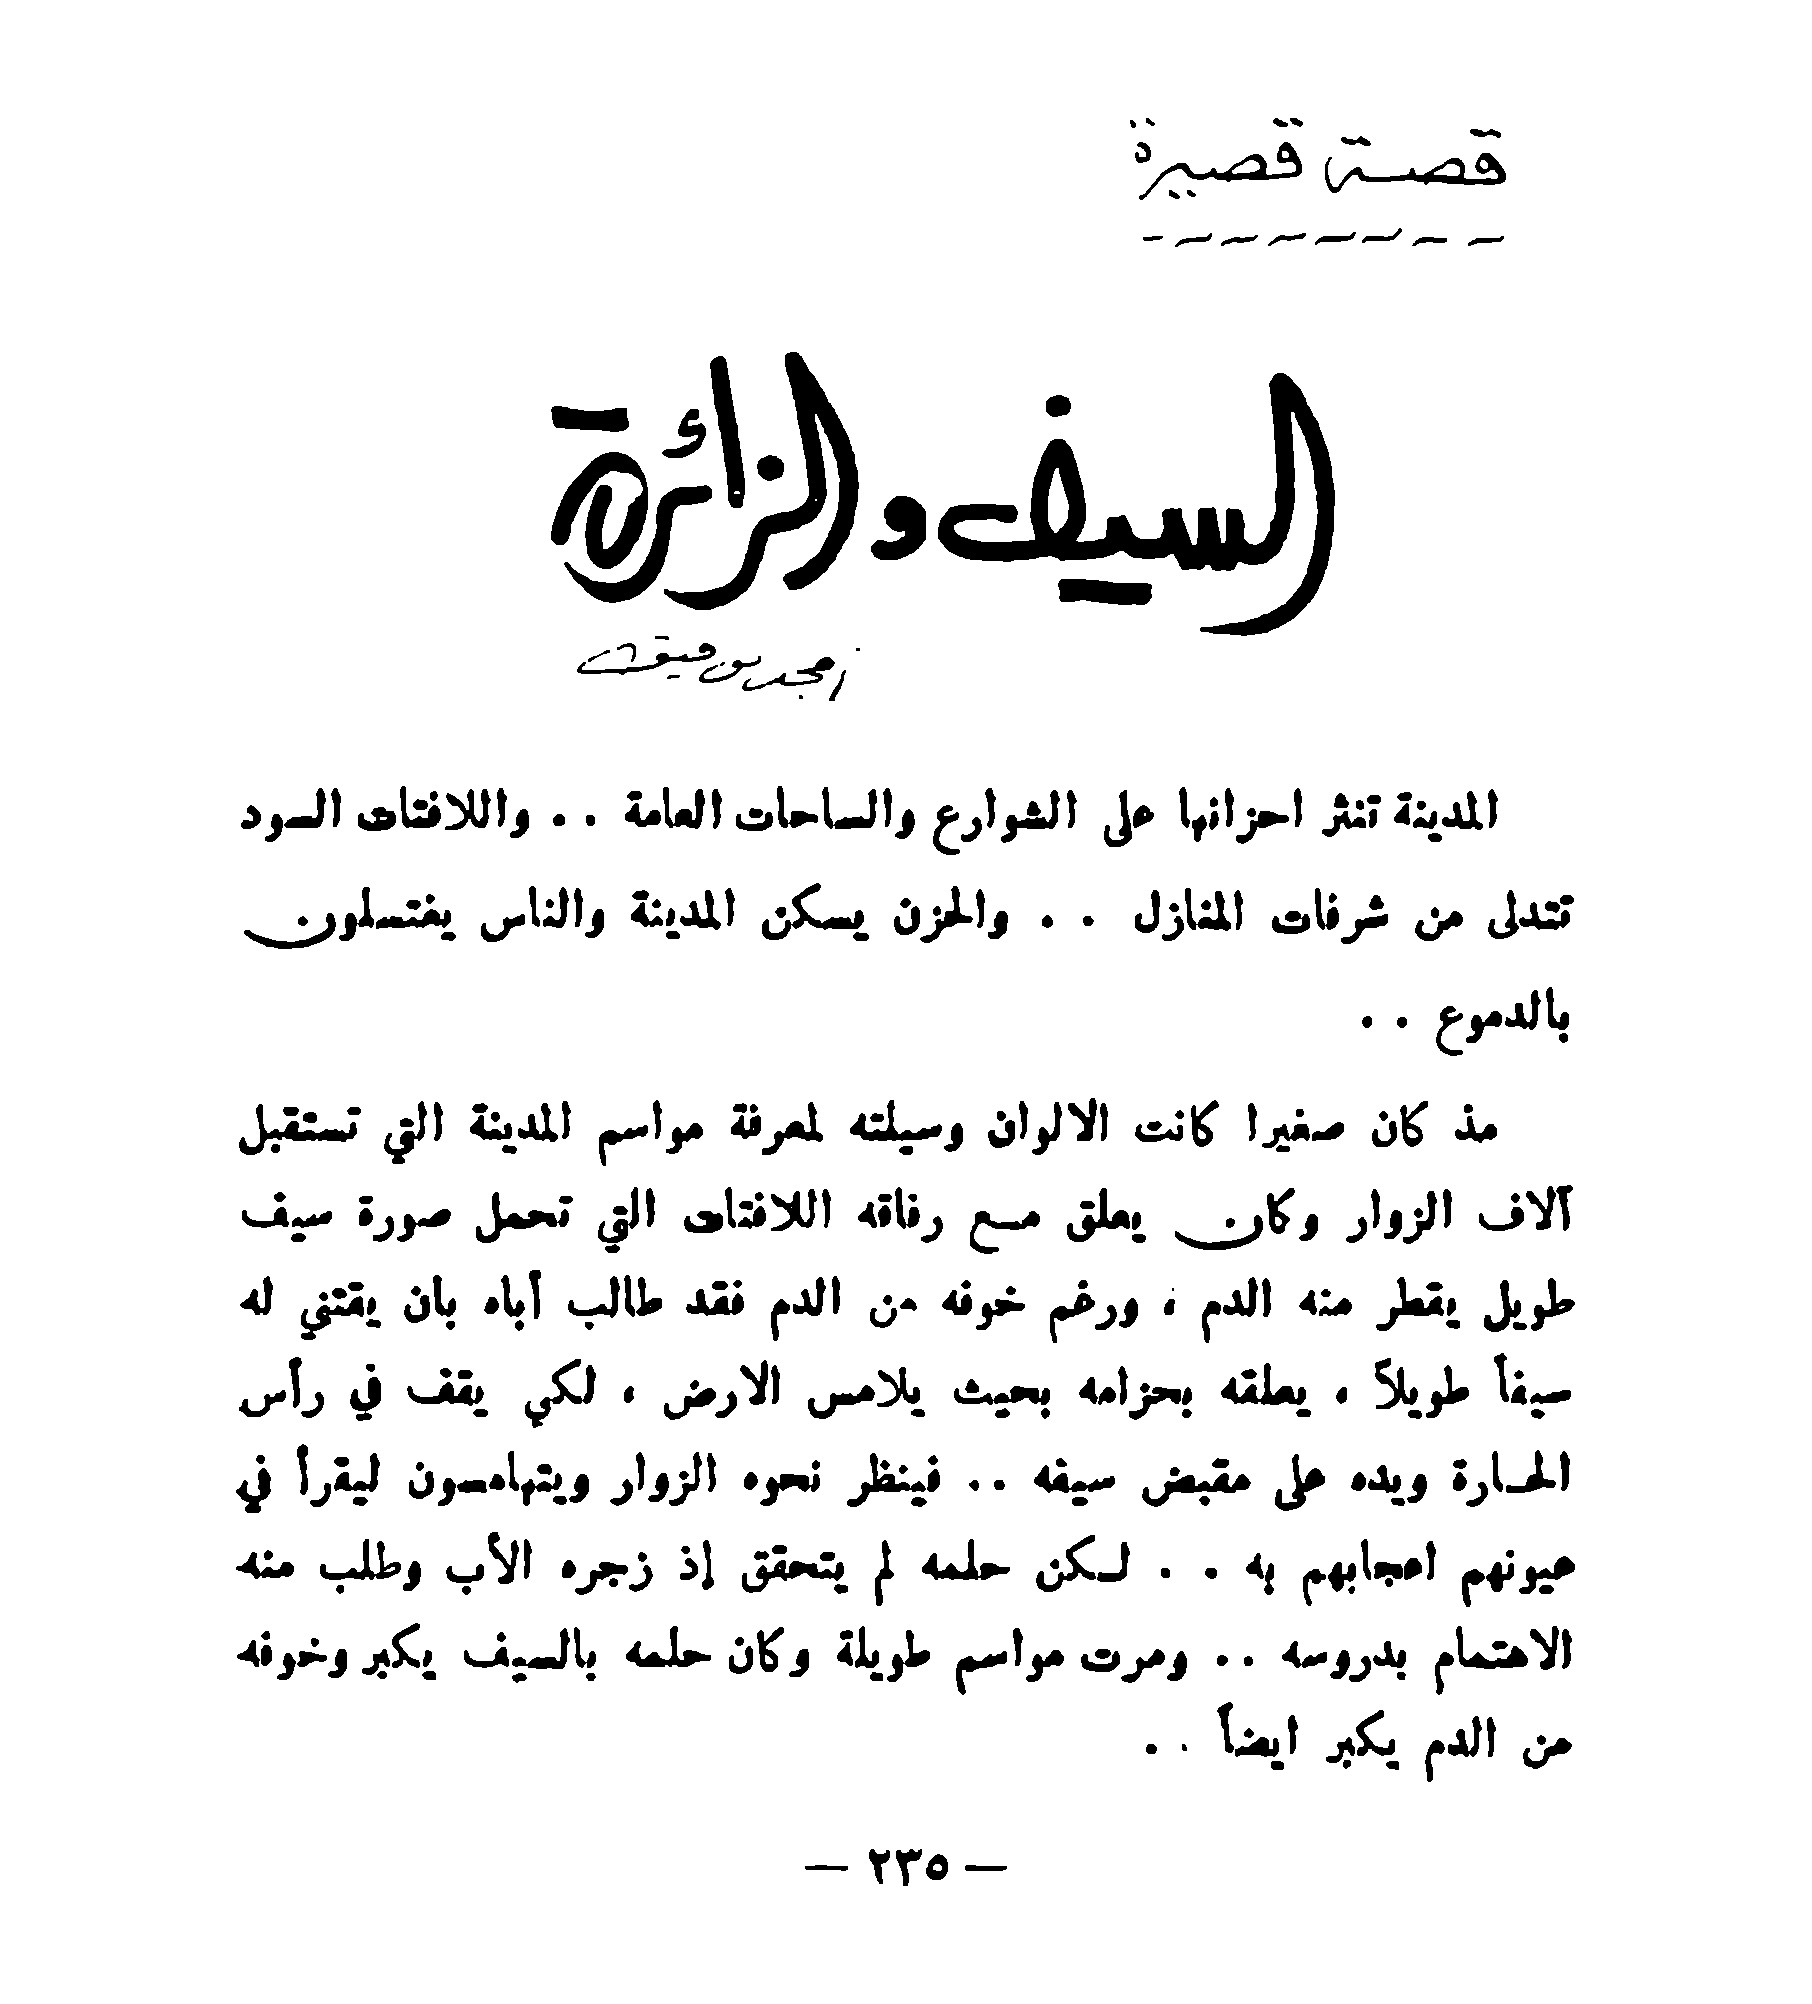 قصة قصيرة
السيف والزائرة
امجد توفيق
المدينة تنثر احزانها على الشوارع والساحات العامة . . واللافتات السود
تتدلى من شرفات المنازل . . والحزن يسكن المدينة والناس يغتسلون
بالدموع . .
مذ كان صغيرا كانت الالوان وسيلته لمعرفة مواسم المدينة التي تستقبل
آلاف الزوار وكان يعلق مع رفاقه اللافتات التي تحمل صورة سيف
طويل يقطر منه الدم ، ورغم خوفه من الدم فقد طالب أباه بان يقتني له
سيفاً طويلاً ، يعلقه بحزامه بحيث يلامس الارض ، لكي يقف في رأس
الحارة ويده على مقبض سيفه . . فينظر نحوه الزوار ويتهامسون ليقرأ في
عيونهم اعجابهم به . . لكن حلمه لم يتحقق إذ زجره الأب وطلب منه
الاهتمام بدروسه . . ومرت مواسم طويلة وكان حلمه بالسيف يكبر وخوفه
من الدم يكبر ايضاً . .
— ٢٣٥ —